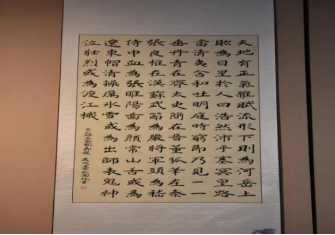 天地有正氣雜賦流形下則為河岳上
則為日星於人曰浩然沛乎塞冥皇路
當清夷含和吐明庭時窮節乃見一一
垂丹青在齊太史簡在晉董狐筆在秦
張良椎在漢蘇武節為嚴將軍頭為嵇
侍中血為張睢陽齒為顏常山舌或為
遼東帽清操厲冰雪或為出師表鬼神
泣壯烈或為渡江楫